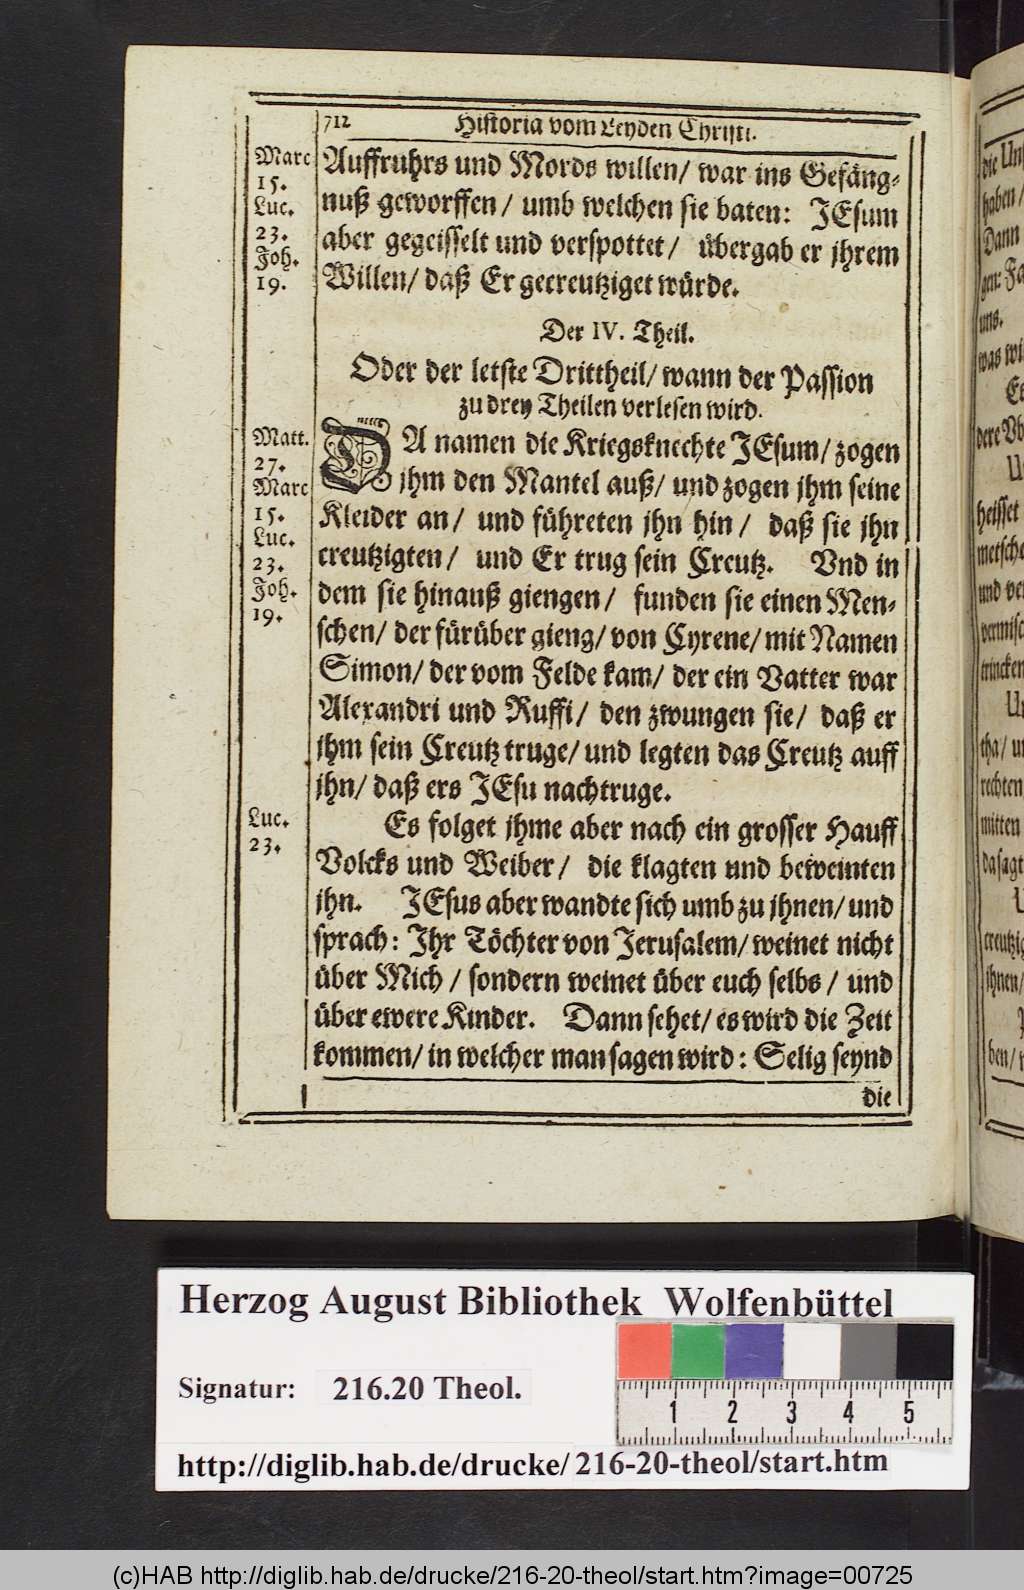 712 Historia vom Leyden Christi.
Marc
15.
Luc.
23.
Joh.
19.
Auffruhrs und Mords willen/ war ins Gefäng-
nuß geworffen/ umb welchen sie baten: JEsum
aber gegeisselt und verspottet/ übergab er jhrem
Willen/ daß Er gecreutziget würde.
Der IV. Theil.
Oder der letste Drittheil/ wann der Passion
zu drey Theilen verlesen wird.
Matt.
27.
Marc
15.
Luc.
23.
Joh.
19.
DA namen die Kriegsknechte JEsum/ zogen
jhm den Mantel auß/ und zogen jhm seine
Kleider an/ und führeten jhn hin/ daß sie jhn
creutzigten/ und Er trug sein Creutz. Vnd in
dem sie hinauß giengen/ funden sie einen Men-
schen/ der fürüber gieng/ von Cyrene/ mit Namen
Simon/ der vom Felde kam/ der ein Vatter war
Alexandri und Ruffi/ den zwungen sie/ daß er
jhm sein Creutz truge/ und legten das Creutz auff
jhn/ daß ers JEsu nachtruge.
Luc.
23.
Es folget jhme aber nach ein grosser Hauff
Volcks und Weiber/ die klagten und beweinten
jhn. JEsus aber wandte sich umb zu jhnen/ und
sprach: Jhr Töchter von Jerusalem/ weinet nicht
über Mich/ sondern weinet über euch selbs/ und
über ewere Kinder. Dann sehet/ es wird die Zeit
kommen/ in welcher man sagen wird: Selig seynd
die
haben/
Dann
uns.
heisset
trincken
rechten
mitten
da sagt
jhnen/
ben/
Herzog August Bibliothek Wolfenbüttel
Signatur: 216.20 Theol.
1 2 3 4 5
http://diglib.hab.de/drucke/216-20-theol/start.htm
(c)HAB http://diglib.hab.de/drucke/216-20-theol/start.htm?image=00725